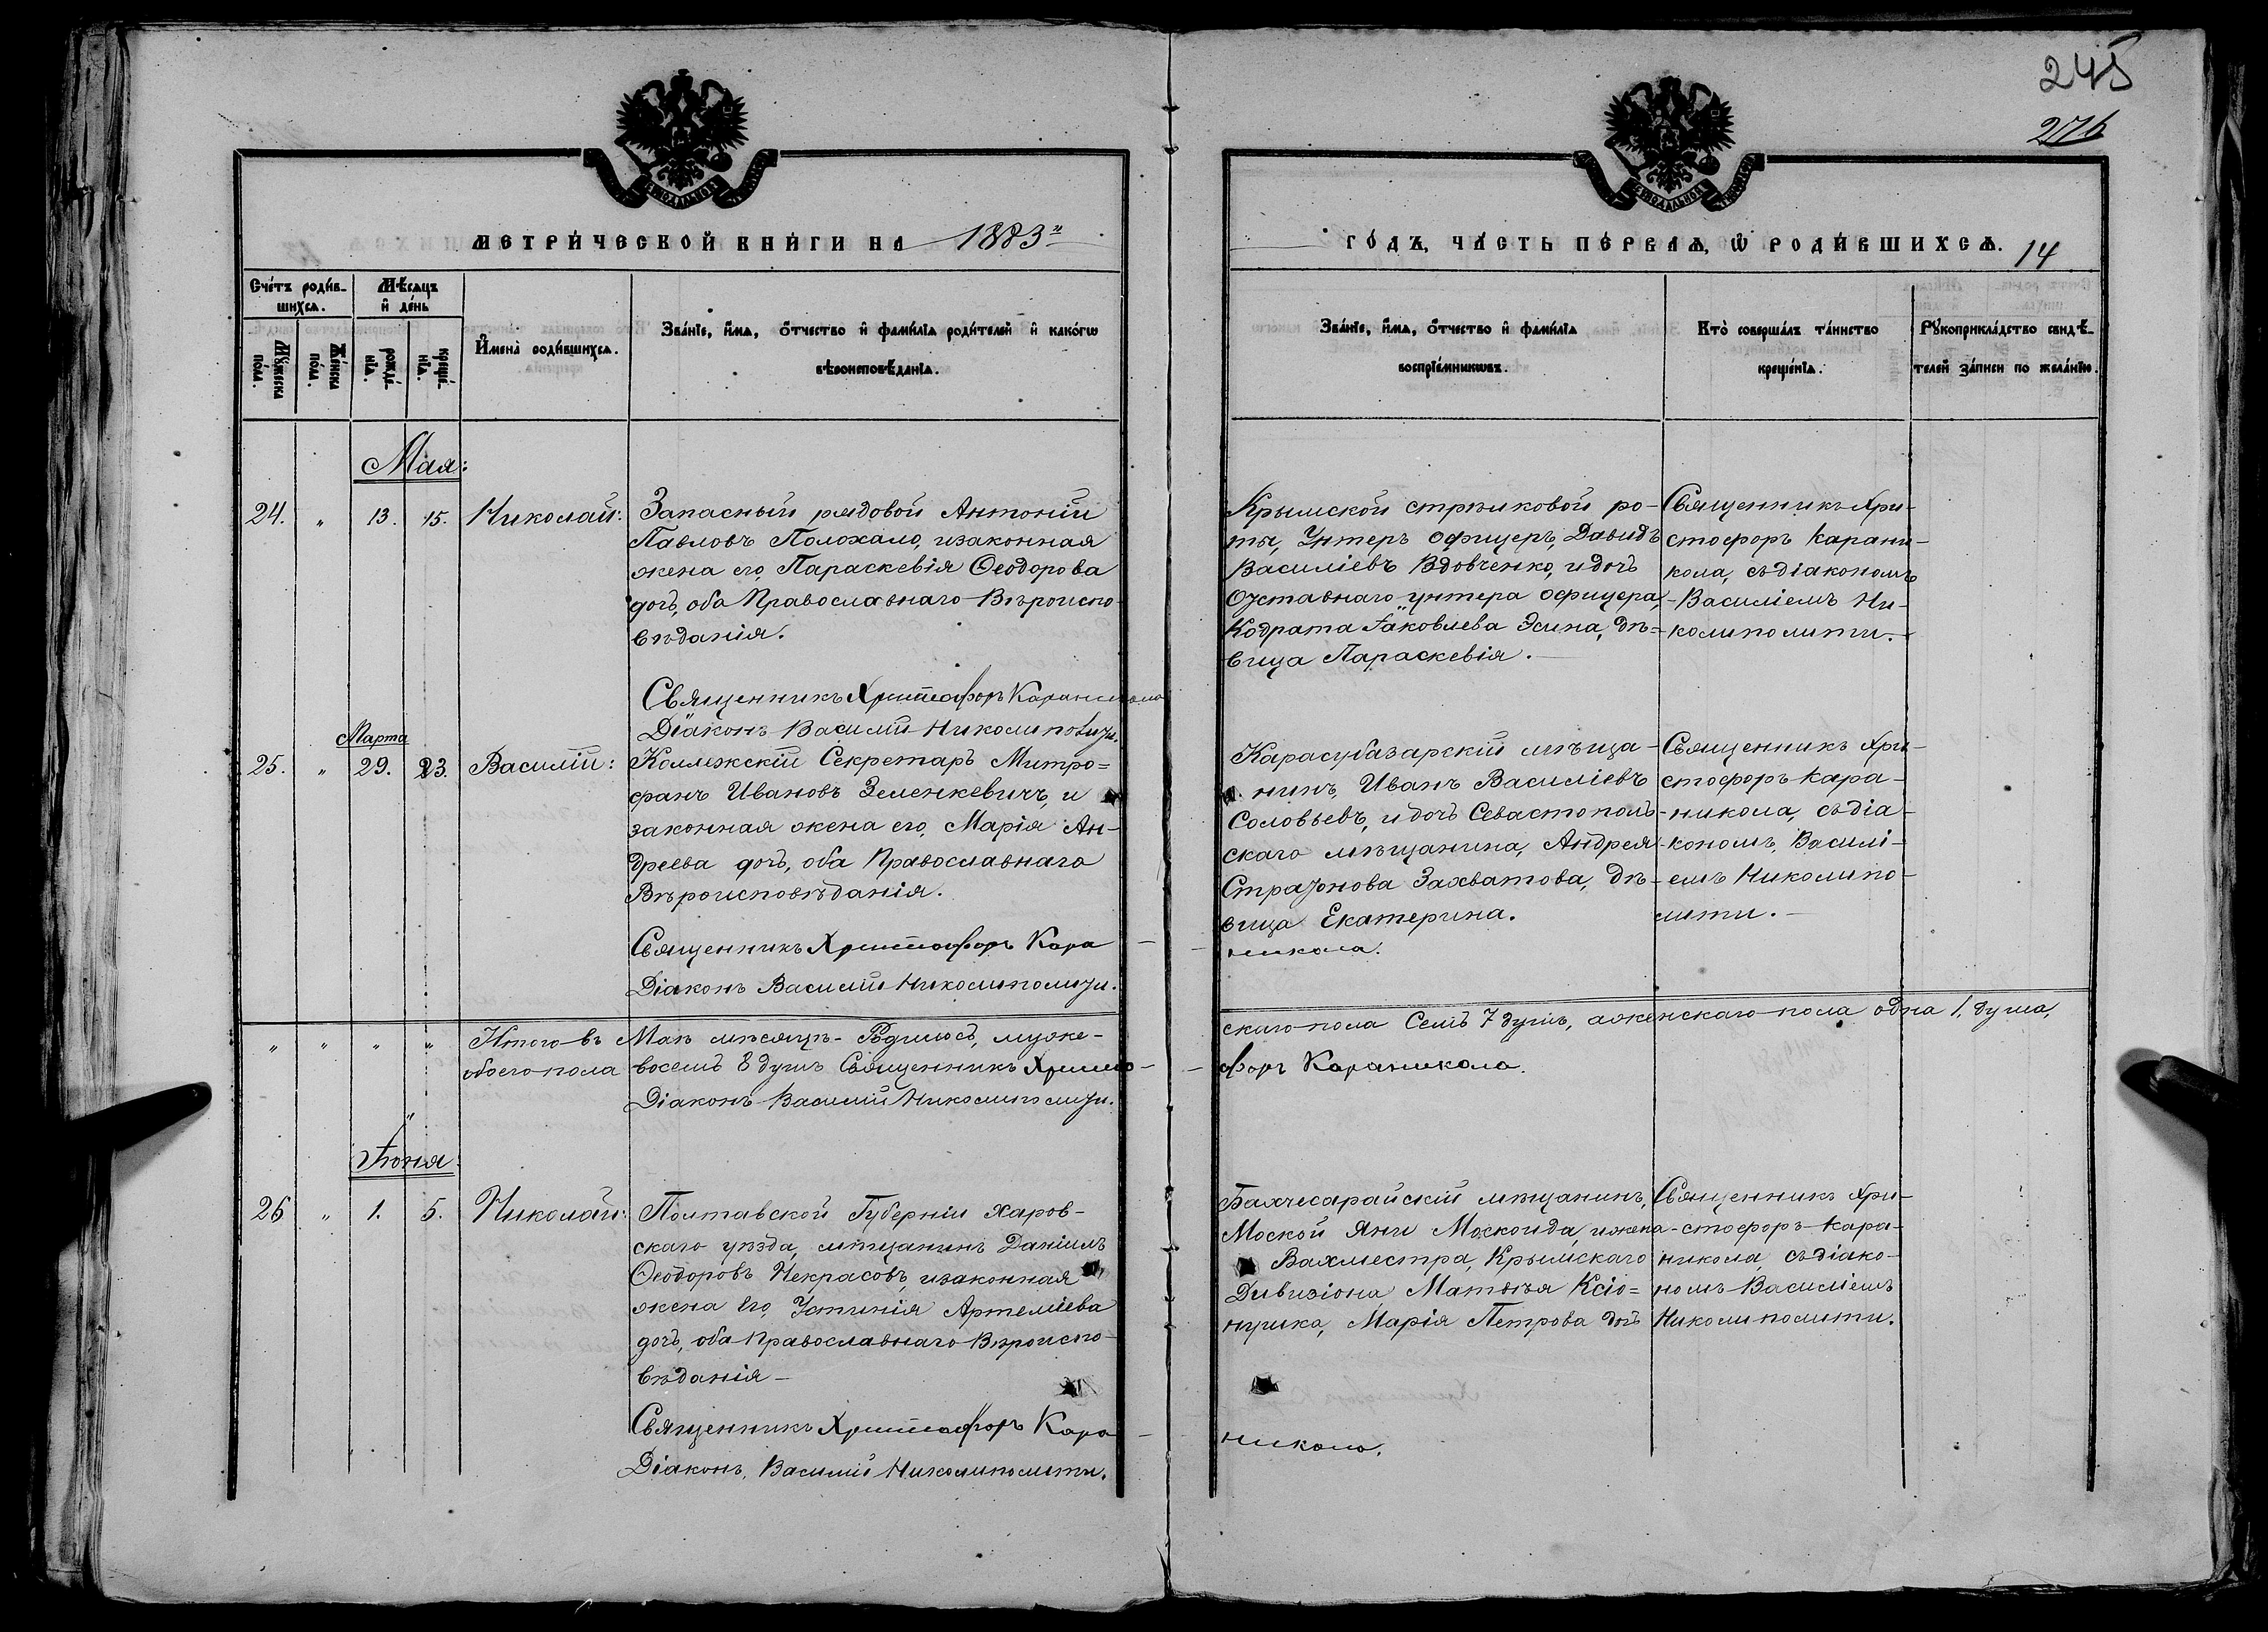 245
276
МЕТРИ́ЧЕСКОЙ КНИ́ГИ НА 1883й
ГО́ДЪ, ЧА́СТЬ ПЕ́РВАѦ, Ѡ РОДИ́ВШИХСѦ. 14
Сче́тъ роди́в-
шихсѧ.
Мѣ́сѧцъ
и҆ де́нь
Мꙋ́жеска
по́ла.
Же́нска
по́ла.
рожде́-
нїѧ.
креще́-
нїѧ.
И҆мена̀ роди́вшихсѧ.
Зва́нїе, и҆́мѧ, ѻ҆́тчество и҆ фами́лїѧ роди́телей и҆ како́гѡ
вѣроисповѣ́данїѧ.
Зва́нїе, и҆́мѧ, ѻ҆́тчество и҆ фами́лїѧ
воспрїе́мникѡвъ.
Кто̀ соверша́лъ та́инство
креще́нїѧ.
Рꙋкоприкла́дство свидѣ́-
телей за́писи по жела́нїю.
Мая:
24. " 13. 15. Николай:
Запасный рядовой Антоній
Павловъ Полохало, изаконная
жена его, Параскевія Ѳеодорова
дочь, оба Православнаго Вѣроиспо-
вѣданія.
Священникъ Христофоръ Караникола
Діаконъ Василій Николиполити.
Крымской стрѣлковой ро-
ты, Унтеръ Офицеръ, Давидъ
Василіевъ Вдовченко, идочь
Отставнаго унтера офицера,
Кодрата Іаковлева Эсина, дѣ-
вица Параскевія.
Священникъ Хри-
стофоръ Карани-
кола, съдіакономъ
Василіемъ Ни-
колиполити.
Марта
25. " 29. 23. Василій:
Коллежскій Секретарь Митро-
фанъ Ивановъ Зеленкевичъ, и
законная жена его, Марія Ан-
дреева дочь, оба Православнаго
Вѣроисповѣданія.
Священникъ Христофоръ Кара-
никола.
Діаконъ Василій Николиполити.
Карасубазарскій мѣща-
нинъ, Иванъ Василіевъ
Соловьевъ, идочь Севастополь-
скаго мѣщанина, Андрея
Стратонова Захватова, дѣ-
вица Екатерина.
Священникъ Хри-
стофоръ Кара-
никола, съдіа-
кономъ, Василі-
емъ Николипо-
лити.
" " " " Итого въ Маѣ мѣсяцѣ Родилось, муже-
скаго пола Семь 7 душъ, аженскаго пола одна 1, душа,
обоего пола восемь 8 душъ Священникъ Христо-
форъ Караникола.
Діаконъ Василій Николиполити.
Іюня:
26 " 1. 5. Николай:
Полтавской Губерніи Харов-
скаго уѣзда, мѣщанинъ Даніилъ
Ѳеодоровъ Некрасовъ, изаконная
жена Его, Устинія Артеміева
дочь, оба Православнаго Вѣроиспо-
вѣданія
Священникъ Христофоръ Кара-
никола.
Діаконъ, Василій Николиполити.
Бахчесарайскій мѣщанинъ,
Моской Яни Москоида, ижена
Вахмистра, Крымскаго
Дивизіона Матѳея Ксіо-
нушка, Марія Петрова дчь
Священникъ Хри-
стофоръ Кара-
никола, съдіако-
номъ Василіемъ
Николиполити.